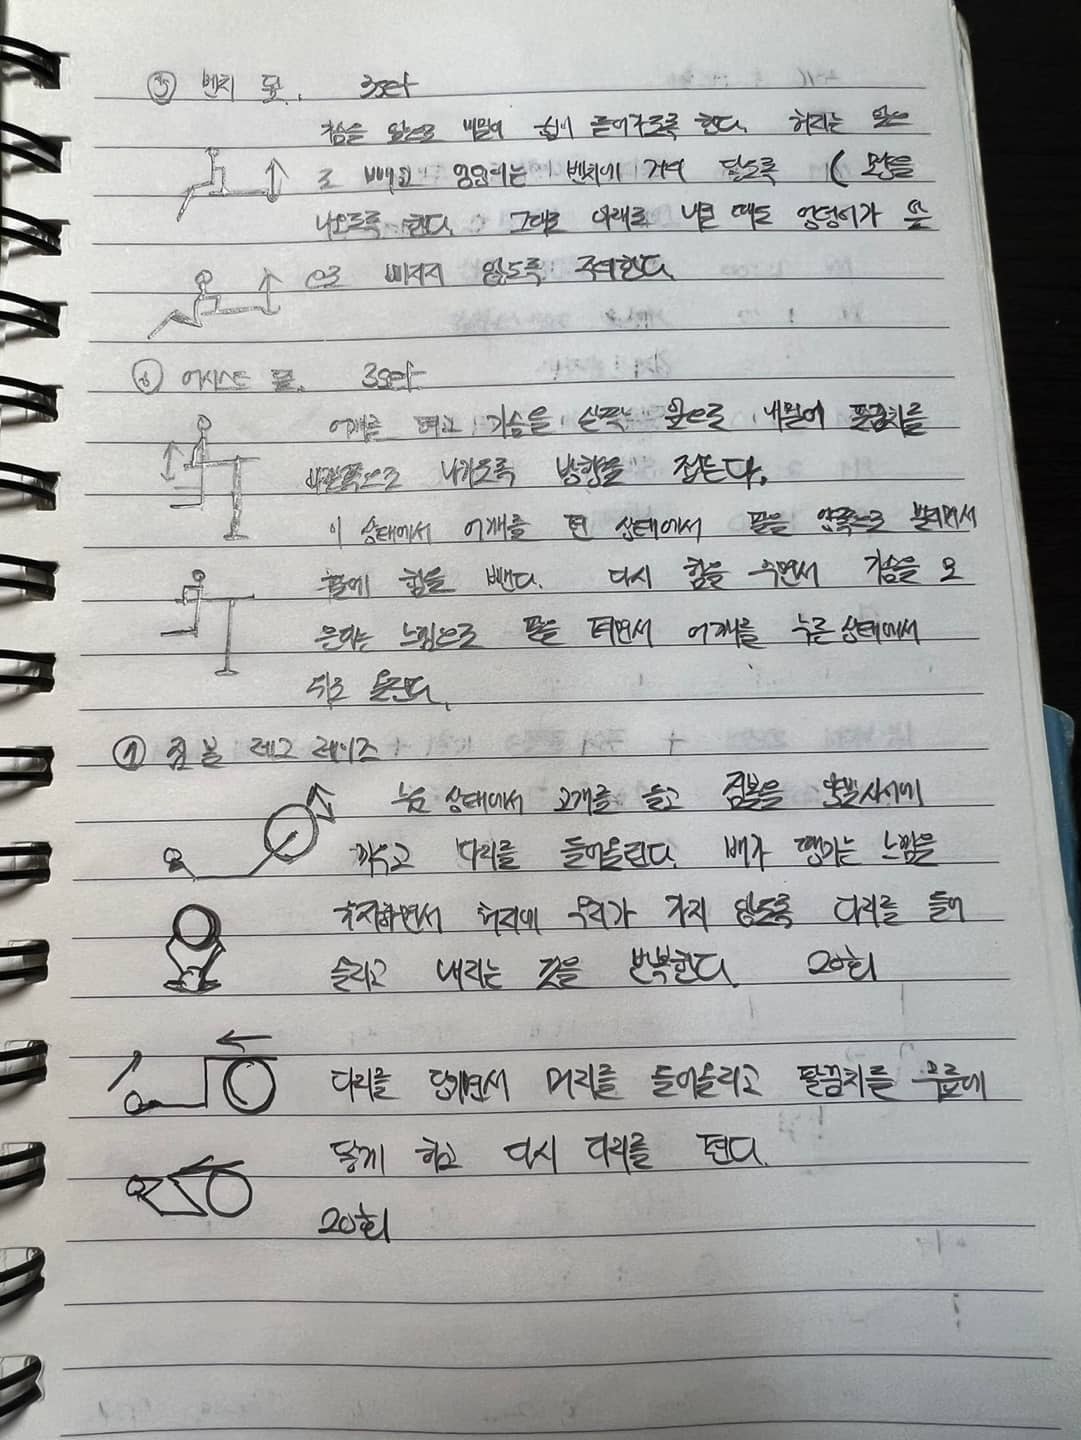 ⑤ 벤치 딮. 3set
힘을 앞으로 내밀어 힘이 들어가도록 한다. 허리는 앞으
로 빼고 엉덩이는 벤치에 거의 닿도록 ( 모양을
나오도록 한다. 그대로 아래로 내릴 때도 엉덩이가 앞
으로 빠지지 않도록 주의한다.
⑥ 어시스트 딮. 3set
어깨를 펴고 가슴을 살짝 앞으로 내밀어 팔꿈치를
바깥쪽으로 나가도록 방향을 잡는다.
이 상태에서 어깨를 편 상태에서 팔을 양쪽으로 벌리면서
팔에 힘을 뺀다. 다시 힘을 주면서 가슴을 모
은다는 느낌으로 팔을 펴면서 어깨를 누른 상태에서
위로 올린다.
① 짐볼 레그 레이즈
누운 상태에서 고개를 들고 짐볼을 양발사이에
끼우고 다리를 들어올린다. 배가 땡기는 느낌을
유지하면서 허리에 무리가 가지 않도록 다리를 들어
올리고 내리는 것을 반복한다. 20회
다리를 당기면서 머리를 들어올리고 팔꿈치를 무릎에
닿게 하고 다시 다리를 편다.
20회